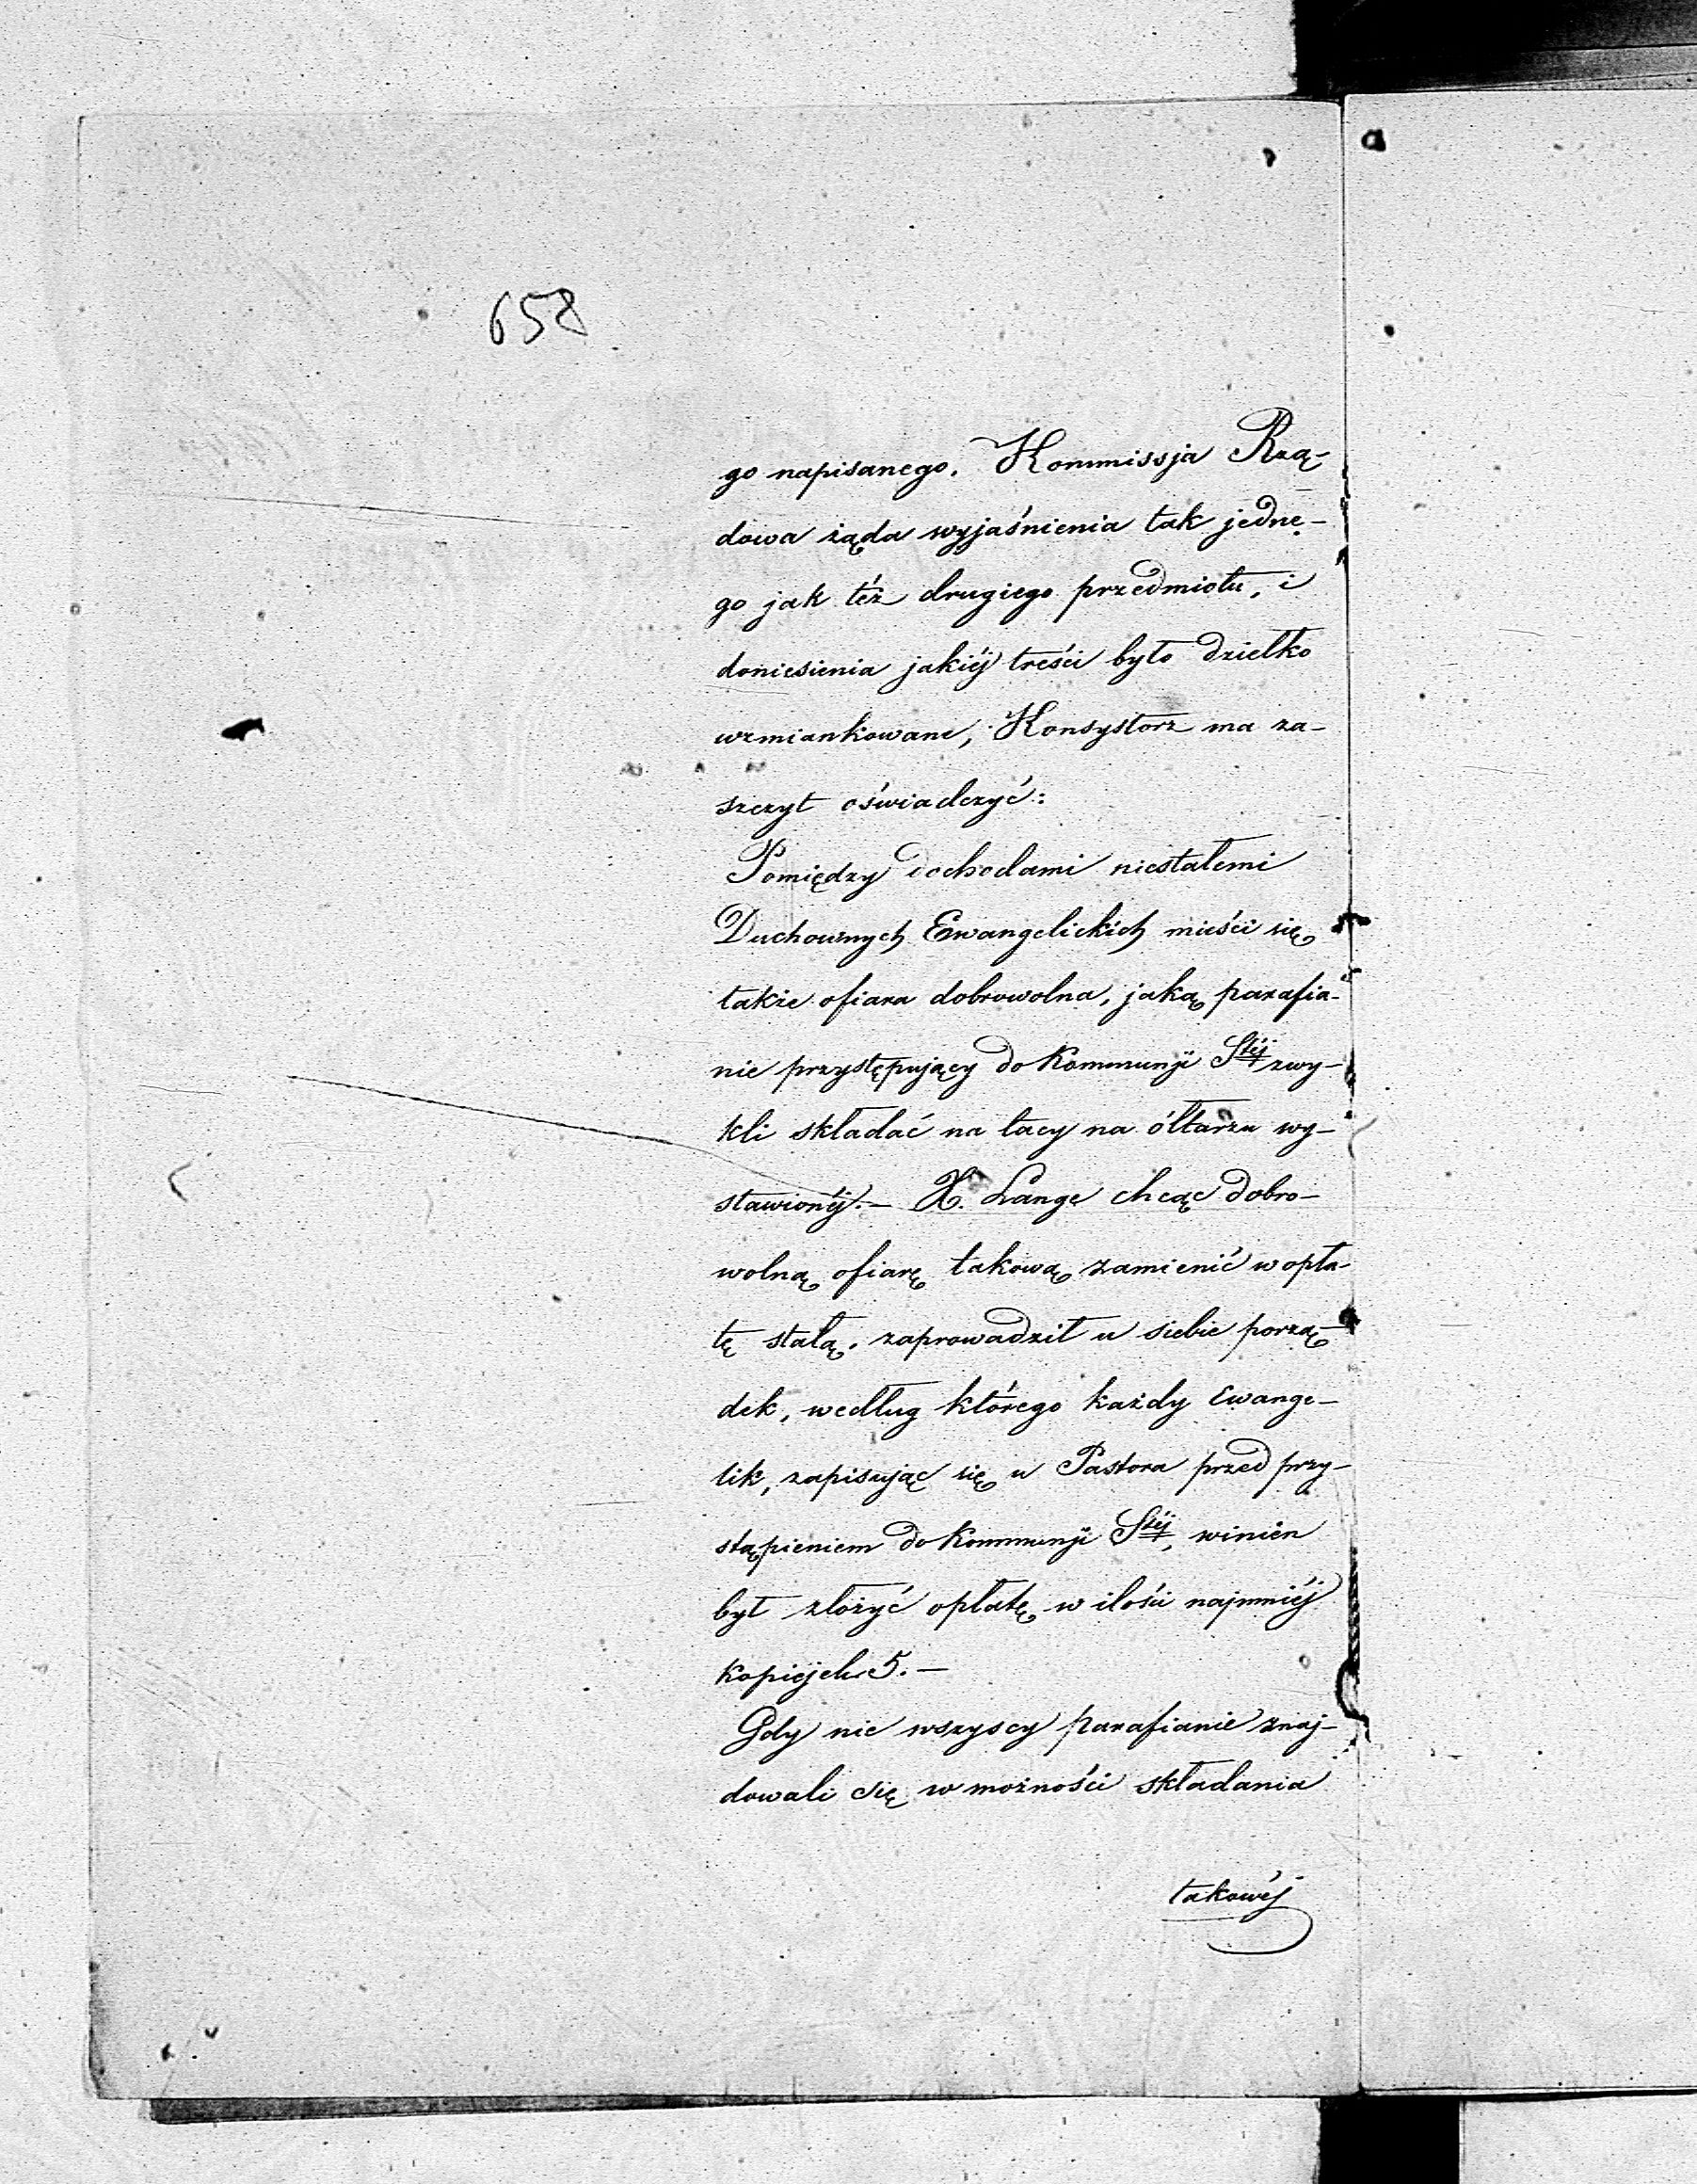 658
go napisanego. Kommissja Rzą-
dowa żąda wyjaśnienia tak jedne-
go jak też drugiego przedmiotu, i
doniesienia jakiéj treści było dziełko
wzmiankowane, Konsystorz ma za-
szczyt oświadczyć:
Pomiędzy dochodami niestałemi
Duchownych Ewangelickich mieści się
także ofiara dobrowolna, jaką parafia-
nie przystępujący do Kommunji Stéj zwy-
kli składać na tacy na ółtarzu wy-
stawionéj.— X. Lange chcąc dobro-
wolną ofiarę takową zamienić w opła-
tę stałą, zaprowadził u siebie porzą-
dek, według którego każdy Ewange-
lik, zapisując się u Pastora przed przy-
stąpieniem do Kommunji Stéj, winien
był złożyć opłatę w ilości najmniéj
kopiejek 5.—
Gdy nie wszyscy parafianie znaj-
dowali się w możności składania
takowéj